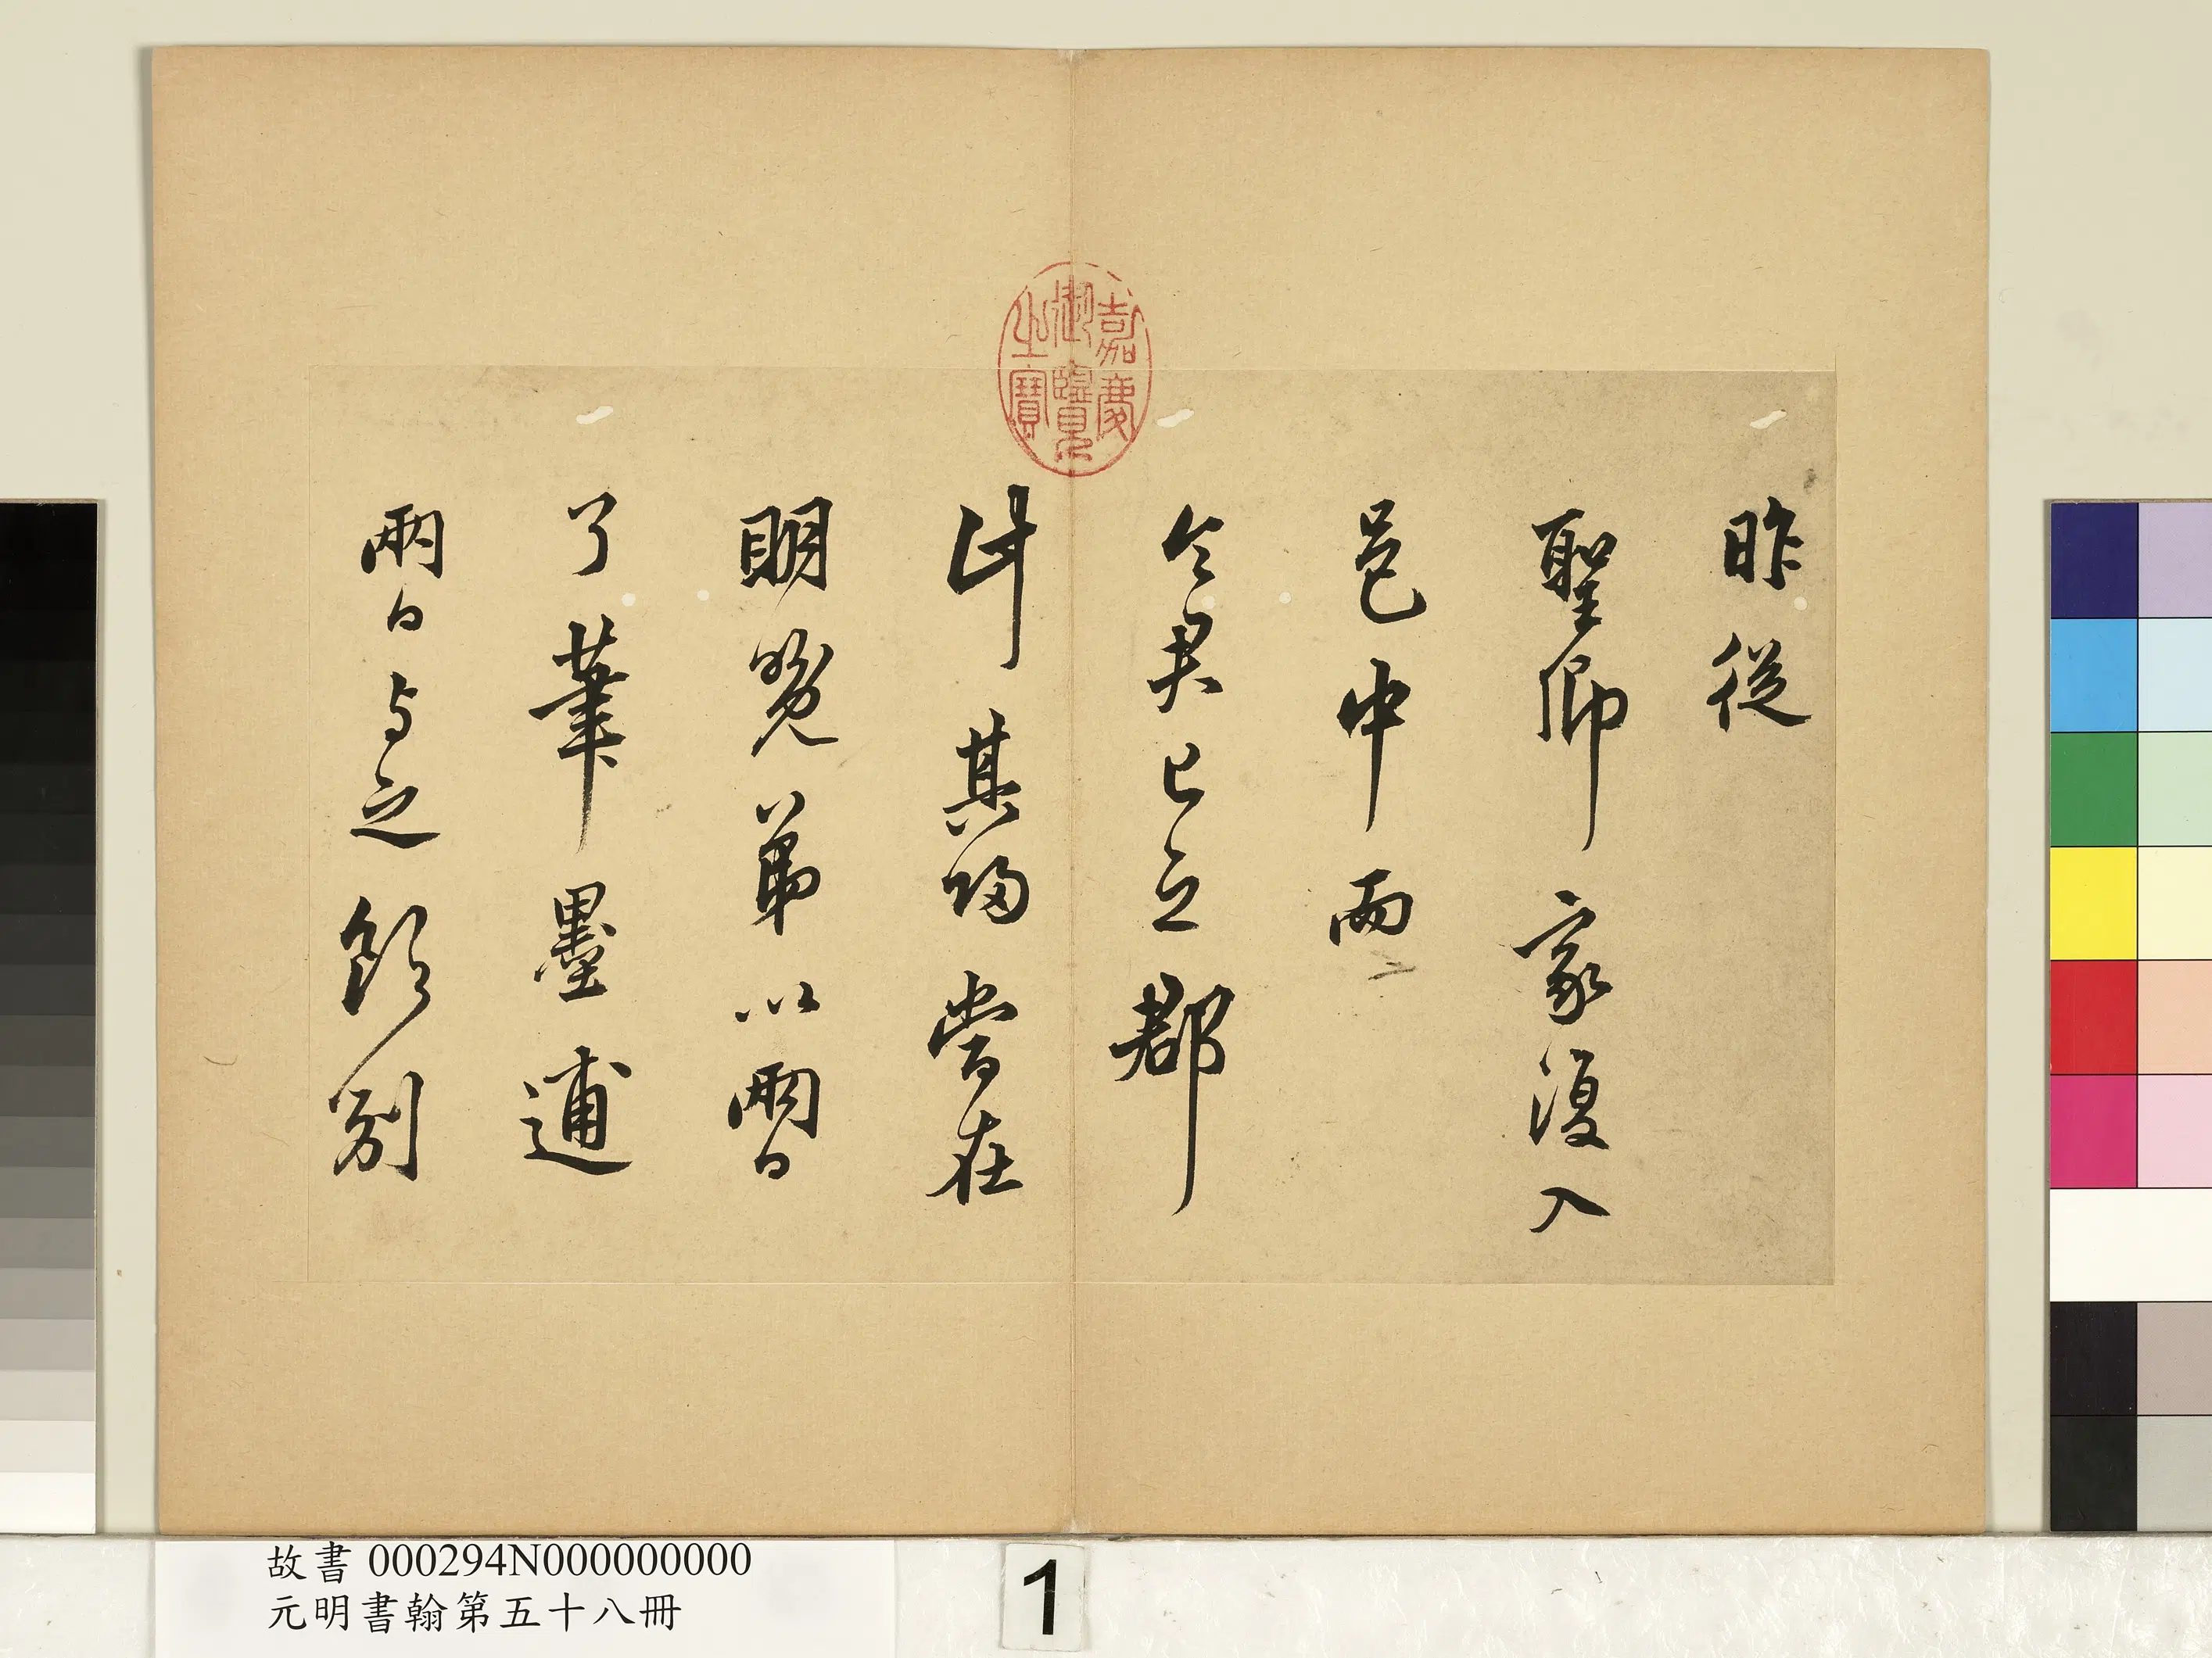 嘉慶御覽之寶
昨從
聖卿家復入
邑中而
令君已之郡
計其歸當在
明晚弟以兩日
了筆墨逋
兩日与之飲別
故書 000294N000000000
元明書翰第五十八冊
1